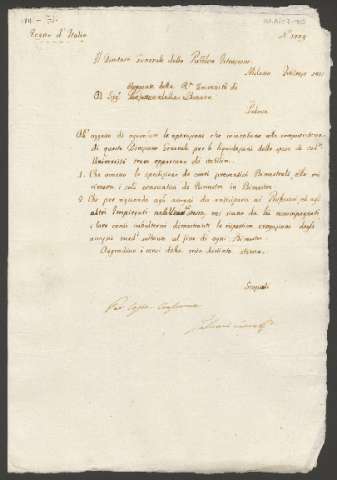 Regno d'Italia
N.° 1009
Il Direttore Generale della Pubblica Istruzione
Milano
Al Sig.r Reggente della R.a Università di
Padova
All'oggetto di agevolare le operazioni che incombono alla
di questa Direzione Generale per le liquidazioni delle spese di cod.a
Università trovo opportuno di stabilire.
1. Che ommessa la spedizione de conti preventivi Bimestrali, ella mi
rimetta i soli consuntivi di Bimestre in Bimestre.
2. Che per riguardo agli assegni da anticiparsi ai Professori ed agli
altri Impiegati mi siano da lei accompagnati
i loro conti dimostranti la ripartita erogazione degli
assegni med.i soltanto al fine di ogni Bimestre.
Aggradisca i sensi della mia distinta stima.
Scopoli
Per Copia Conforme